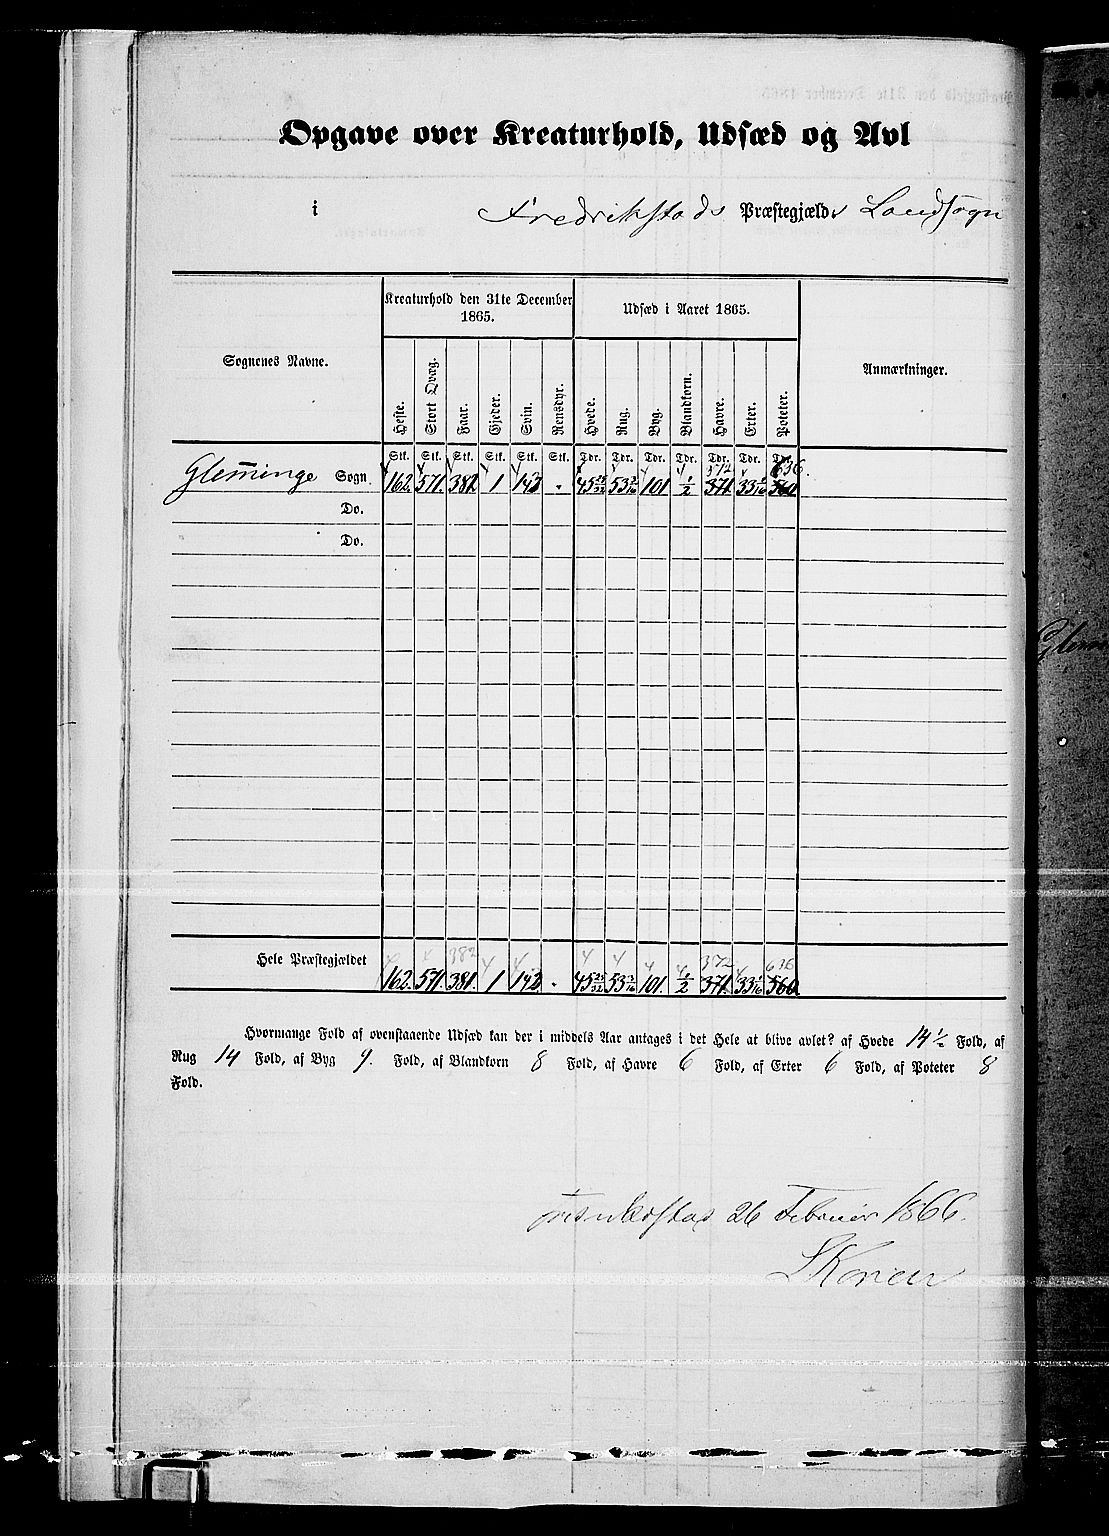 Opgave over Kreaturhold, Udsæd og Avl
i Fredrikstads Præstegjælds Landsogn
Sognenes Navne.
Kreaturhold den 31te December 1865.
Udsæd i Aaret 1865.
Anmærkninger.
Heste. Stort Qvæg. Faar. Gjeder. Svin. Rensdyr. Hvede. Rug. Byg. Blandkorn. Havre. Erter. Poteter.
Stk. Stk. Stk. Stk. Stk. Stk. Tdr. Tdr. Tdr. Tdr. Tdr. Tdr. Tdr.
372 636.
Glemminge Sogn. 162. 571. 382. 1 143 . 45 53 3/16 101 1/2 371. 33 560
Do.
Do.
382 372 636
Hele Præstegjældet 162. 571. 381. 1 143 . 45 53 3/16 101. 1/2 371. 33 560
Hvormange Fold af ovenstaaende Udsæd kan der i middels Aar antages i det Hele at blive avlet? af Hvede 14 1/2 Fold, af
Rug 14 Fold, af Byg 9. Fold, af Blandkorn 8 Fold, af Havre 6 Fold, af Erter 6 Fold, af Poteter 8
Fold.
26 Februar 1866.
Glem